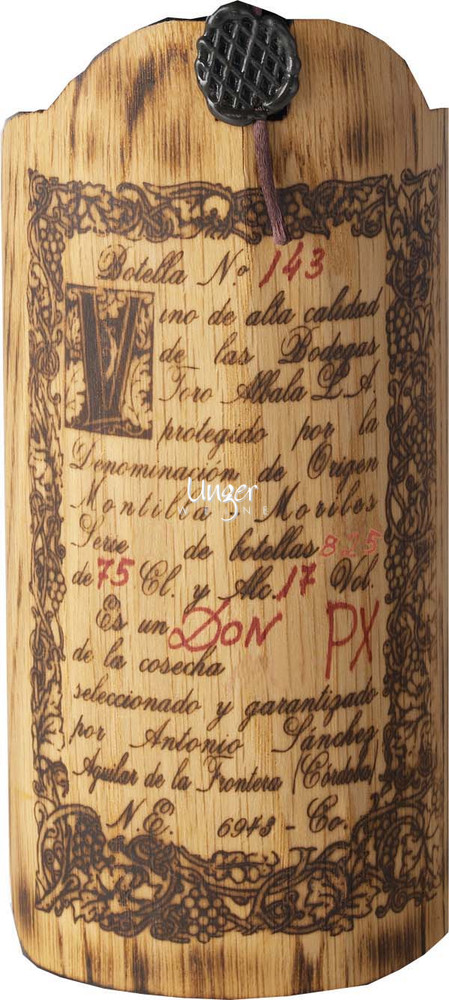 Botella Nº 143
Vino de alta calidad
de las Bodegas
Toro Albala S.A.
protegido por la
Denominación de Origen
Montilla Moriles
Unger
Serie de botellas 825
de 75 Cl. y Alc. 17 Vol.
Es un DON PX
de la cosecha
seleccionado y garantizado
por Antonio Sánchez
Aguilar de la Frontera (Córdoba)
N.E. 6943 - Co.